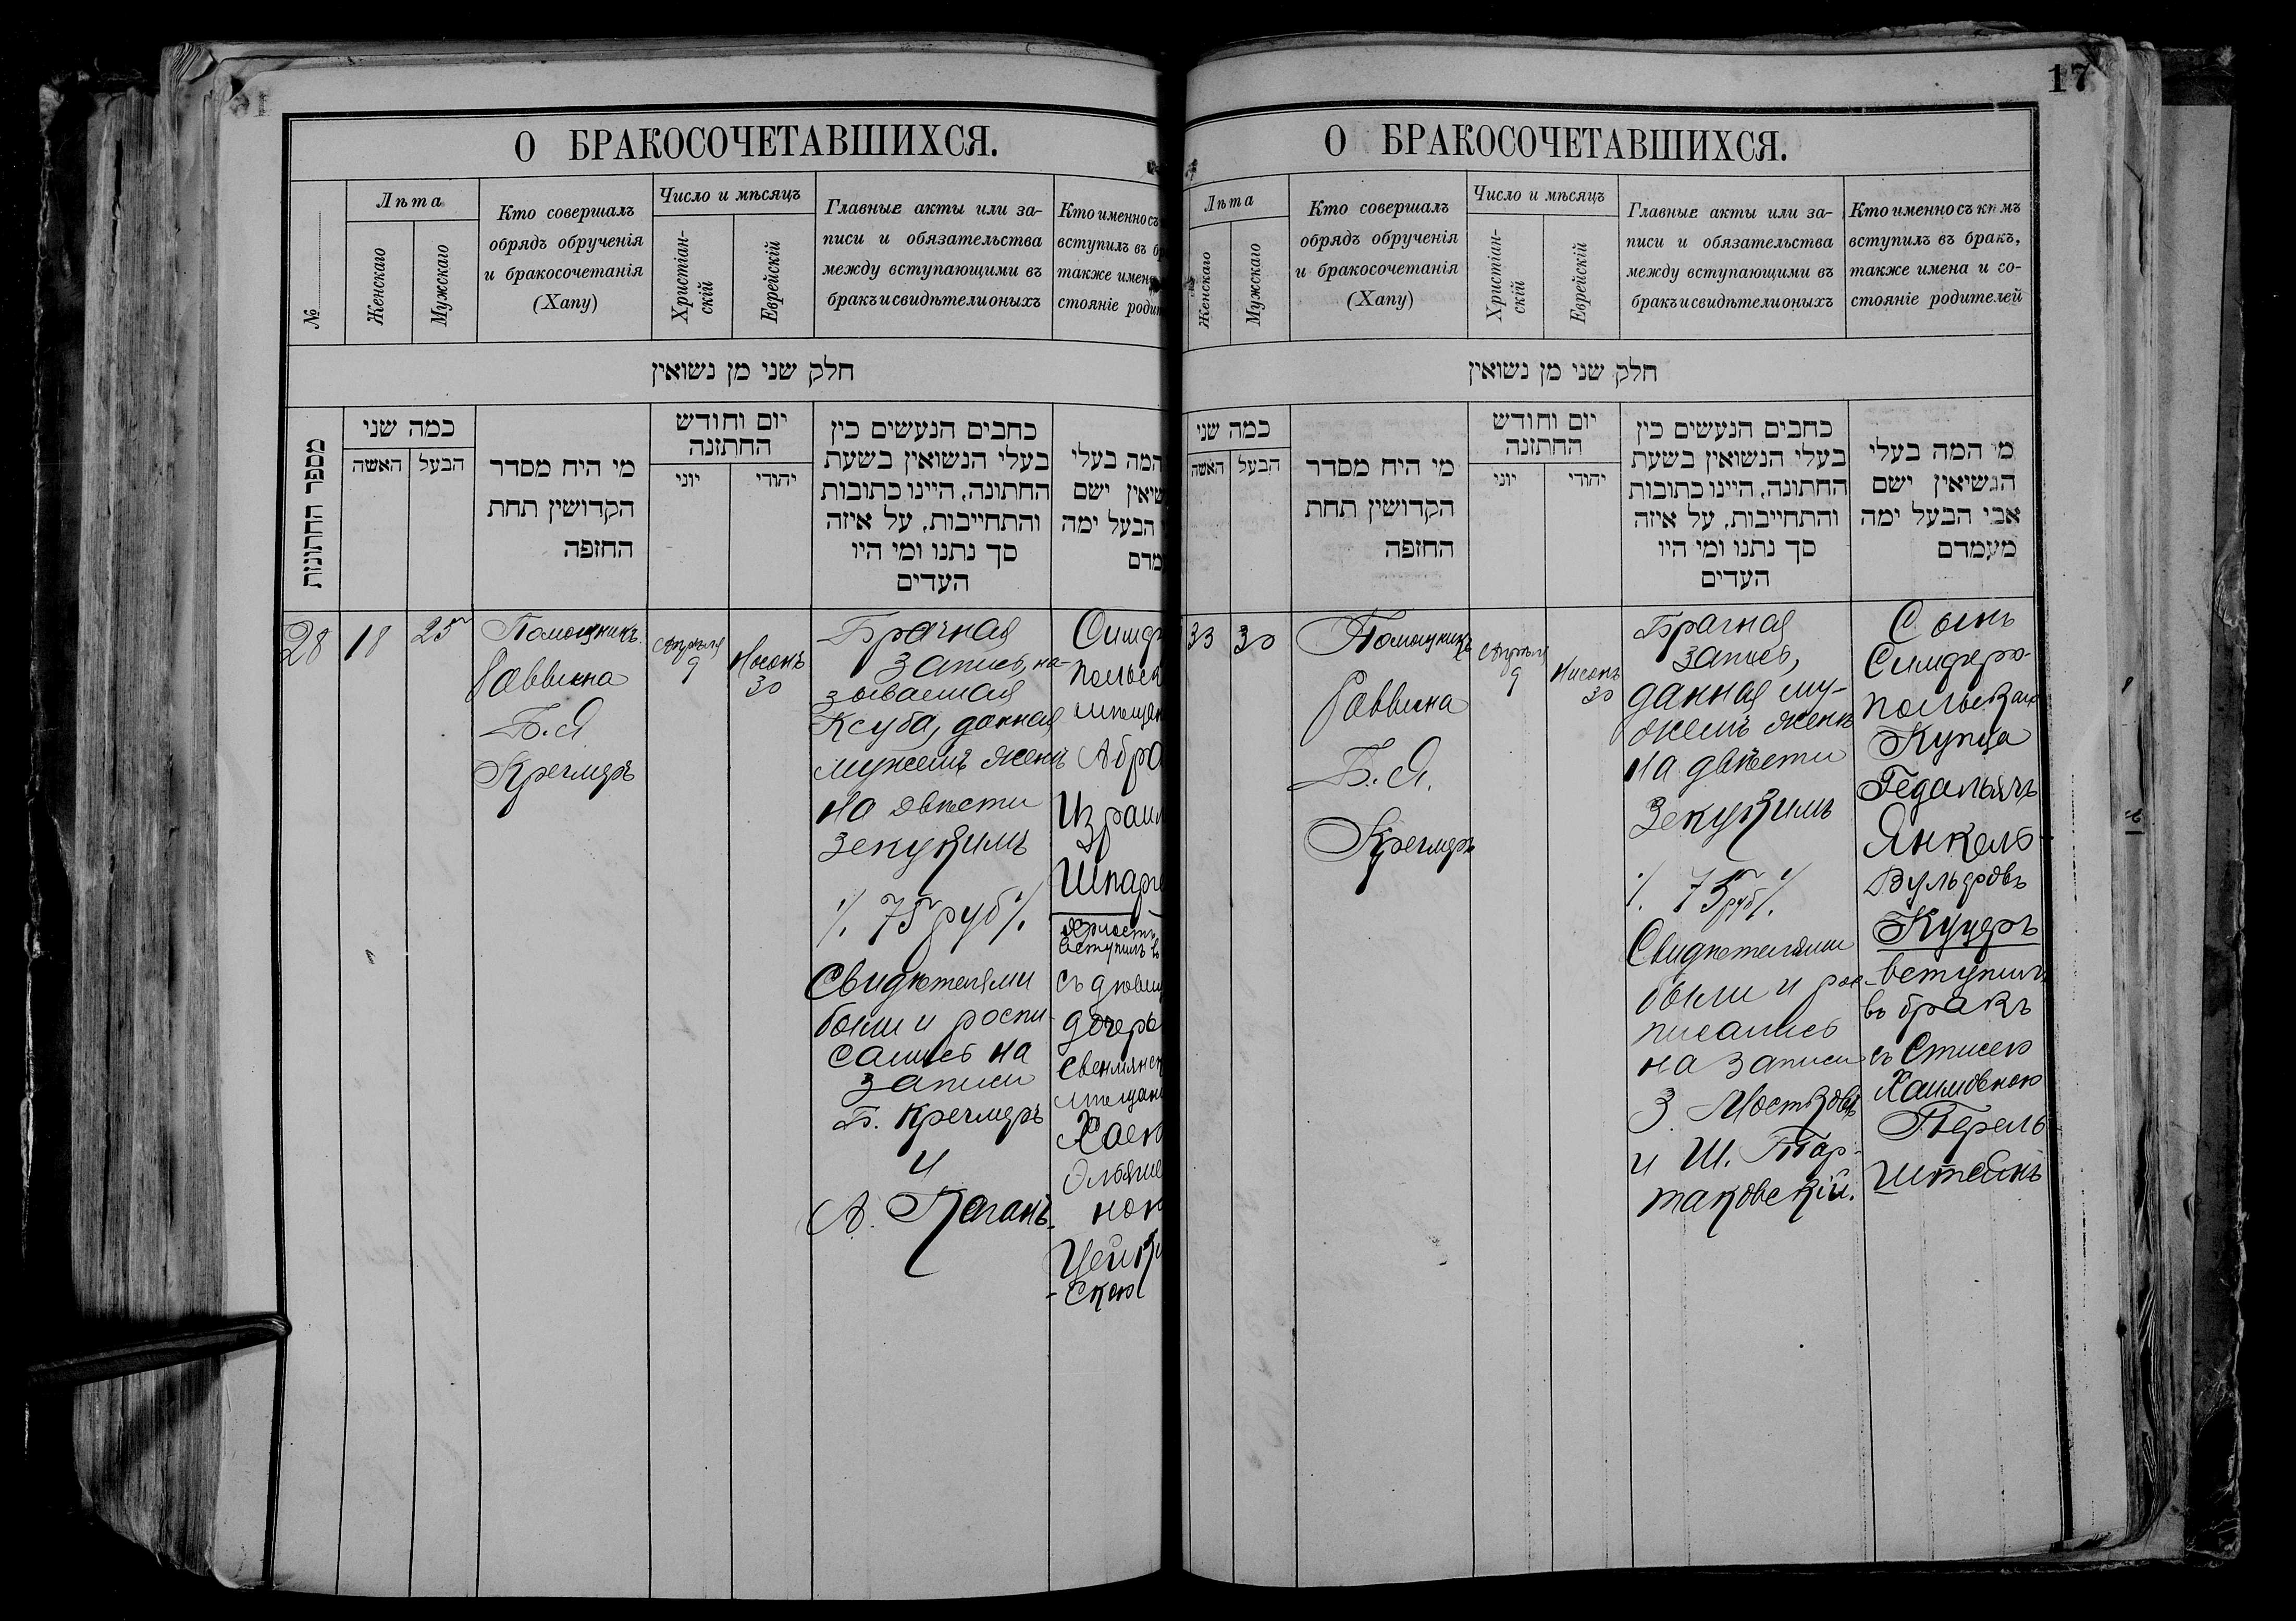 О БРАКОСОЧЕТАВШИХСЯ.
№
Лѣта
Женскаго
Мужскаго
Кто совершалъ
обрядъ обрученія
и бракосочетанія
(Хапу)
Число и мѣсяцъ
Христіан-
скій
Еврейскій
Главные акты или за-
писи и обязательства
между вступающими въ
бракъ и свидѣтели оныхъ
Кто именно съ
вступилъ въ б
также имен
стояніе роди
חלק שני מן נשואין
מספר החתונות
כמה שני
האשה
הבעל
מי היח מסדר
הקדושין תחת
החזפה
יום וחודש
החתזנה
יוני
יהודי
כחבים הנעשים כין
בעלי הנשואין בשעת
החתונה, היינו כתובות
והתחייבות, על איזה
סך נתנו ומי היו
העדים
המה בעלי
שיאין ישם
הבעל ימה
מדם
28
18
25
Помощникъ
Раввина
Б. Я
Кречмеръ
Апрѣля
9
Нисонъ
30
Брачная
запись, на-
зываемая
Ксуба, данная
мужемъ женѣ
на двѣсти
зекукимъ
٪ 75 руб ٪
Свидѣтелями
были и роспи
сались на
записи
Б. Кречмеръ
и
А. Коганъ
Симф
польск
мѣщан
Абра
Израил
Шпарг
вступилъ в
съ дѣвиц
дочерь
Свенцянск
мѣщан
Хаею
ною
Цейк
-скою
17
О БРАКОСОЧЕТАВШИХСЯ.
Лѣта
Женскаго
Мужскаго
Кто совершалъ
обрядъ обрученія
и бракосочетанія
(Хапу)
Число и мѣсяцъ
Христіан-
скій
Еврейскій
Главные акты или за-
писи и обязательства
между вступающими въ
бракъ и свидѣтели оныхъ
Кто именно съ кѣмъ
вступилъ въ бракъ,
также имена и со-
стояніе родителей
חלק שני מן נשואין
כמה שני
האשה
הבעל
מי היח מסדר
הקדושין תחת
החזפה
יום וחודש
החתזנה
יוני
יהודי
כחבים הנעשים כין
בעלי הנשואין בשעת
החתונה, היינו כתובות
והתחייבות, על איזה
סך נתנו ומי היו
העדים
מי המה בעלי
הנשיאין ישם
אבי הבעל ימה
מעמדם
33
30
Помощникъ
Раввина
Б. Я.
Кречмеръ
Апрѣля
9
Нисонъ
30
Брачная
запись,
данная му-
жемъ женѣ
на двѣсти
зекукимъ
٪ 75 руб ٪
Свидѣтелями
были и рос-
писались
на записи
З. Мостковъ
и Ш. Тар-
таковскій.
Сынъ
Симферо-
польскаго
Купца
Гедальягъ
Янкель-
Вульфовъ
Куцеръ
вступилъ
въ бракъ
съ Стисею
Хаимовною
Перель
штейнъ